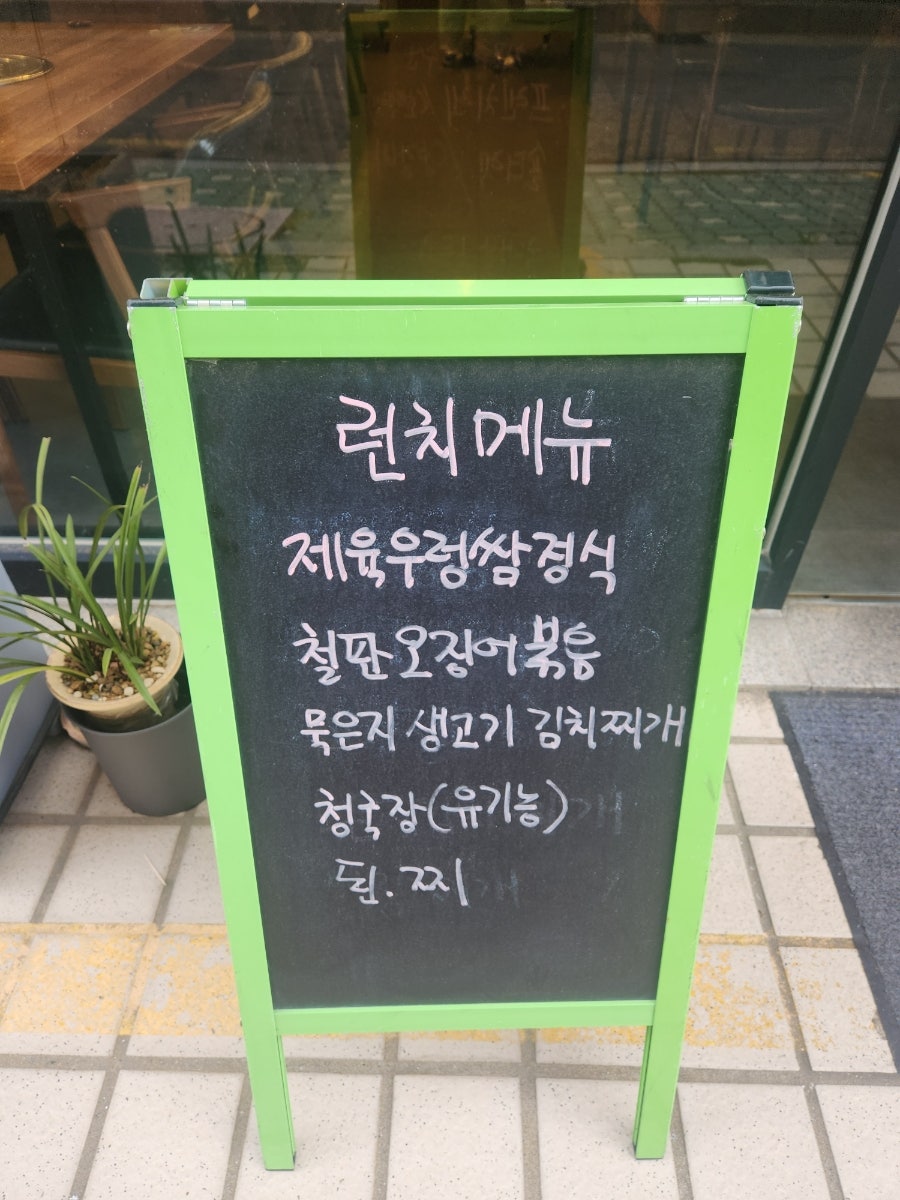 런치 메뉴
제육우렁쌈정식
철판 오징어 볶음
묵은지 생고기 김치찌개
청국장(유기농)
된.찌